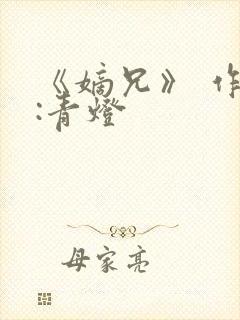 《嫡兄》 作
:青燈
母家亮